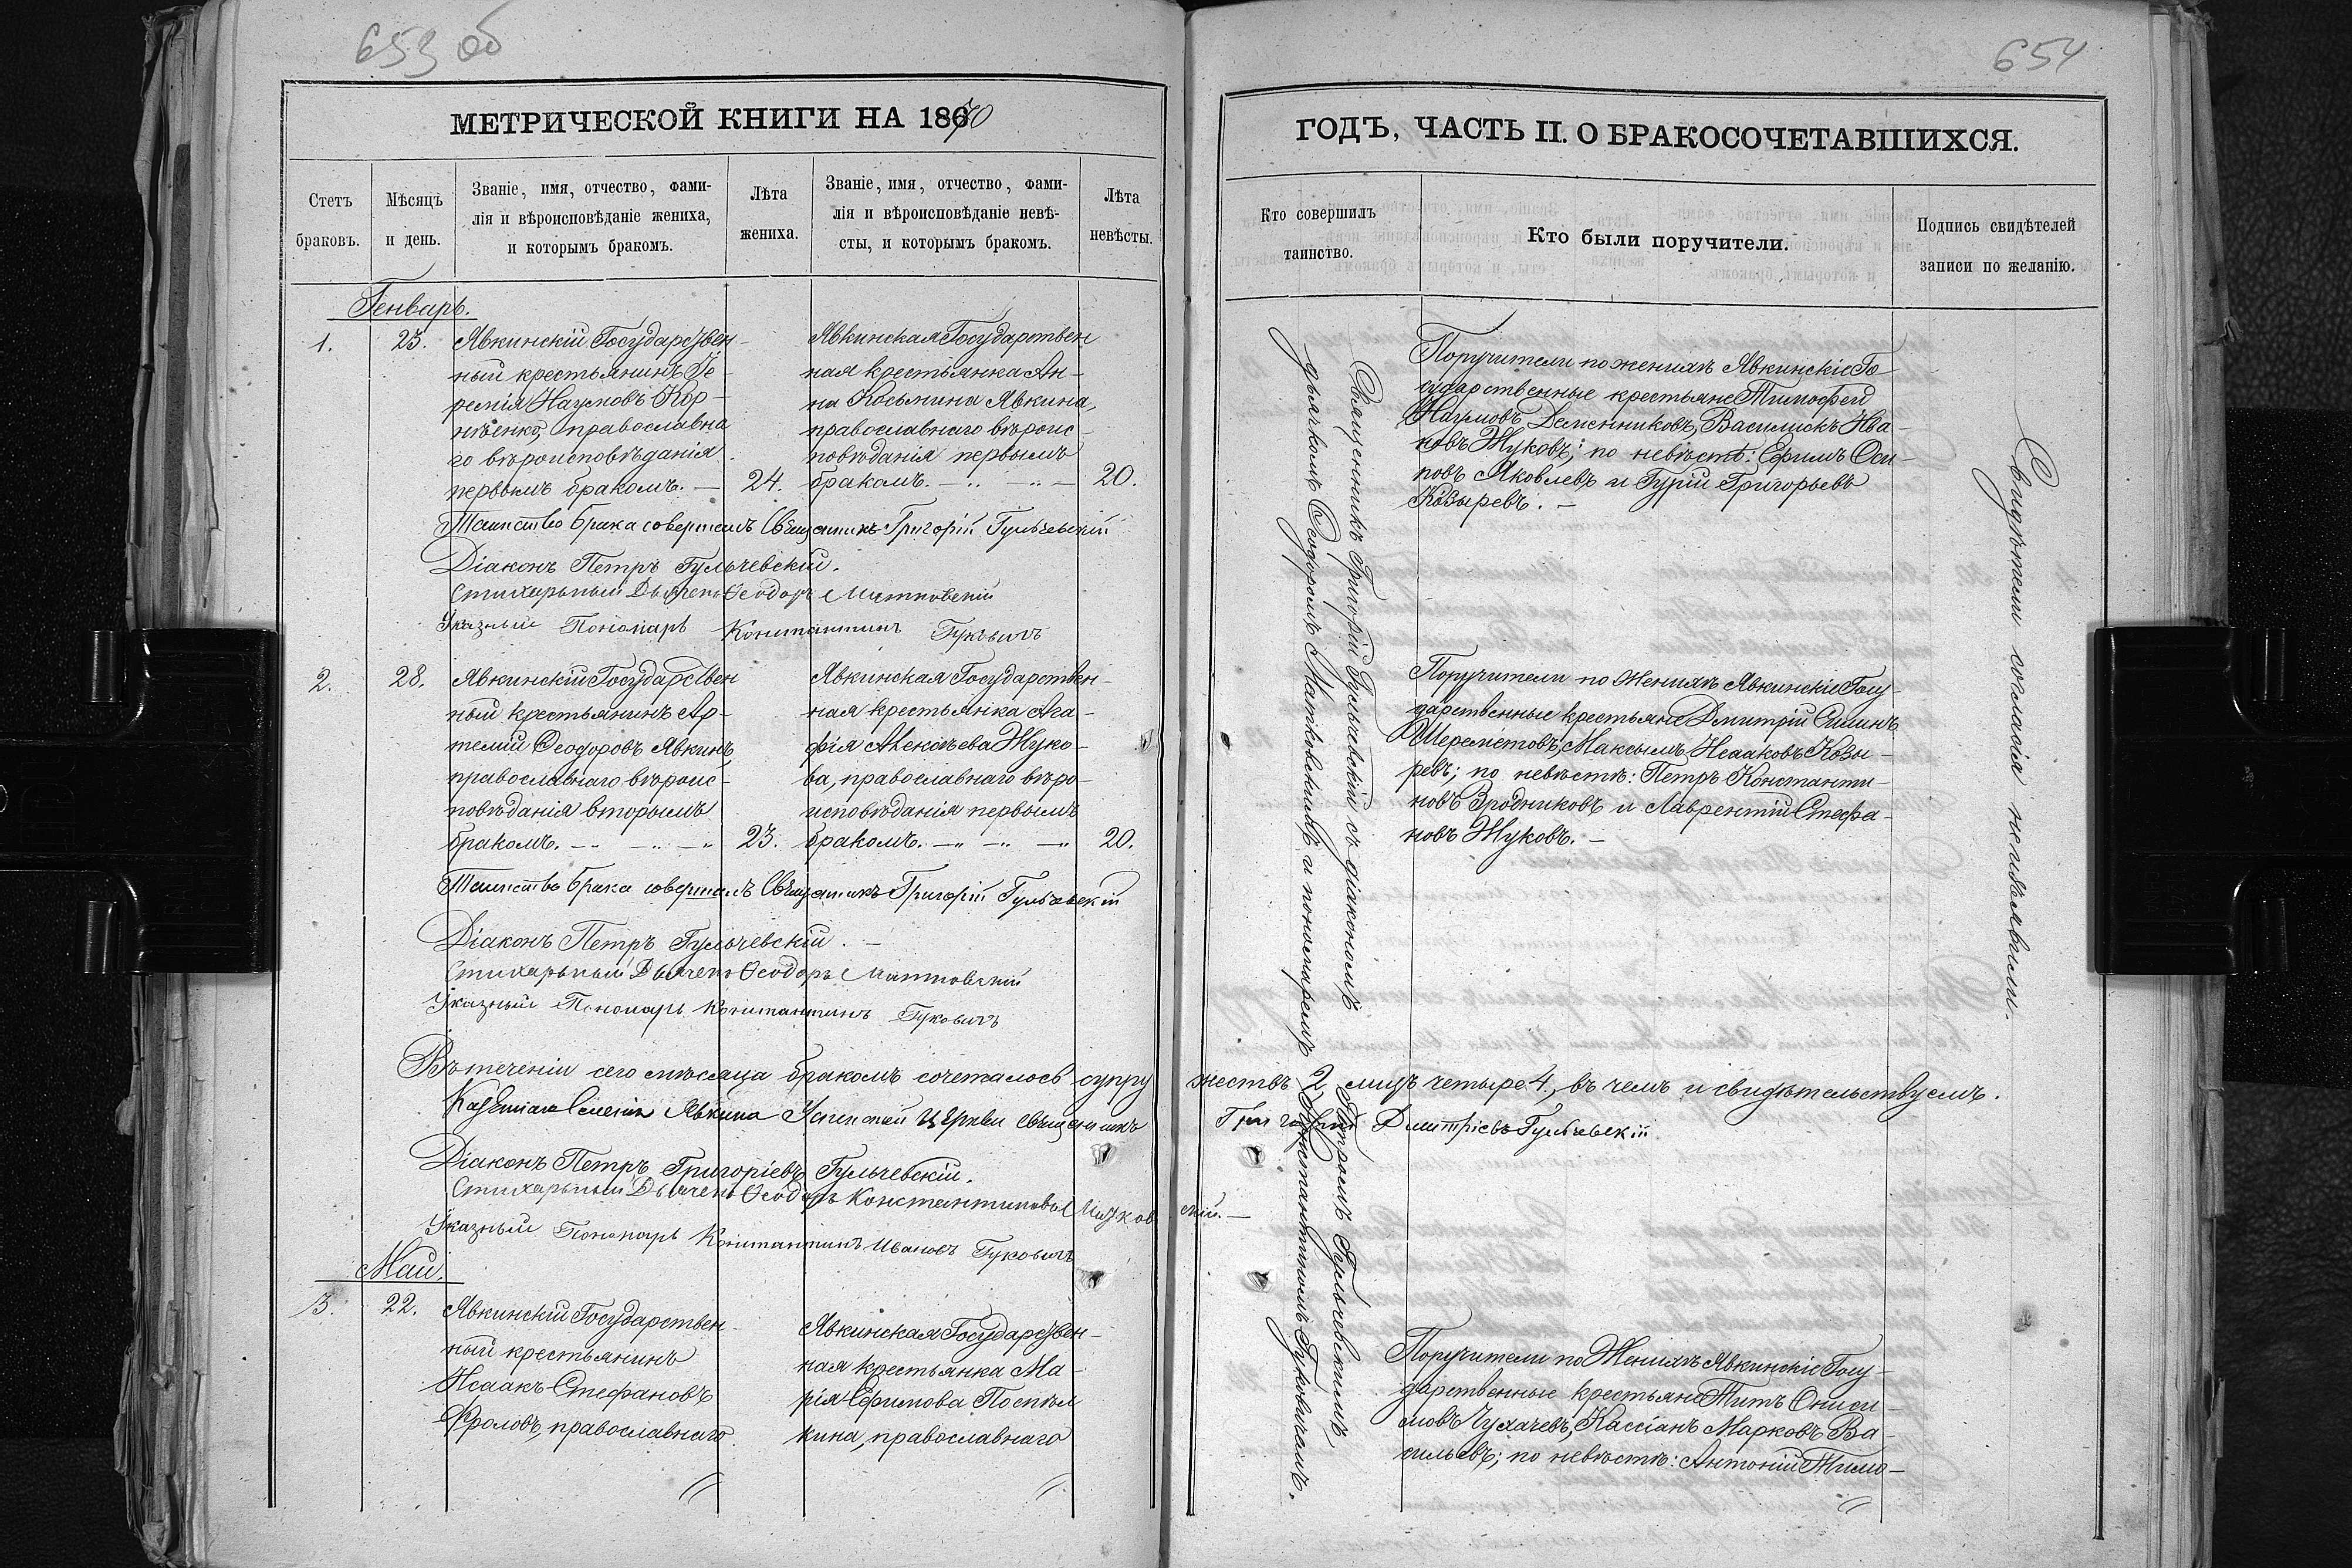 653 об
МЕТРИЧЕСКОЙ КНИГИ НА 1870
Счетъ
браковъ.
Мѣсяцъ
и день.
Званіе, имя, отчество, фами-
лія и вѣроисповѣданіе жениха,
и которымъ бракомъ.
Лѣта
жениха.
Званіе, имя, отчество, фами-
лія и вѣроисповѣданіе невѣ-
сты, и которымъ бракомъ.
Лѣта
невѣсты.
Генварь.
1.
25.
Явкинскій Государствен-
ный крестьянинъ Іе-
ремія Наумовъ Кор-
нѣенко, православна
го вѣроисповѣданія
первымъ бракомъ. —
24.
Явкинская Государствен
ная крестьянка Ан-
на Косьмина Явкина,
православнаго вѣроис-
повѣданія первымъ
бракомъ. —
20.
Таинство брака совершилъ Священникъ Григорій Гульчевскій
Діаконъ Петръ Гульчевскій.
Стихарный Дьячекъ Ѳеодоръ Матковскій
Указный Пономарь Константинъ Гуковичъ
2.
28.
Явкинскій Государствен
ный крестьянинъ Ар-
темій Ѳеодоровъ Явкинъ,
православнаго вѣроис-
повѣданія вторымъ
бракомъ. —
23.
Явкинская Государствен-
ная крестьянка Ага-
фія Алексѣева Жуко-
ва, православнаго вѣро-
исповѣданія первымъ
бракомъ. —
20.
Таинство брака совершилъ Священникъ Григорій Гульчевскій
Діаконъ Петръ Гульчевскій. —
Стихарный Дьячекъ Ѳеодоръ Матковскій
Указный Пономарь Константинъ Гуковичъ
Въ теченіи сего мѣсяца бракомъ сочеталось супру
Селенія Явкина Успенской Церкви священникъ
Діаконъ Петръ Григоріевъ Гульчевскій.
Стихарный Дьячекъ Ѳеодоръ Константиновъ Матков
Указный Пономарь Константинъ Ивановъ Гуковичъ
Май.
3.
22.
Явкинскій Государствен-
ный крестьянинъ
Исаакъ Стефановъ
Фроловъ, православнаго
Явкинская Государствен-
ная крестьянка Ма-
рія Ефимова Поспѣл
кина, православнаго
654
ГОДЪ, ЧАСТЬ II. О БРАКОСОЧЕТАВШИХСЯ.
Кто совершилъ
таинство.
Кто были поручители.
Подпись свидѣтелей
записи по желанію.
Священникъ Григорій Гульчевскій съ діакономъ
Петромъ Гульчевскимъ
дьячкомъ Ѳеодоромъ Матковскимъ и пономаремъ
Константиномъ Гуковичемъ.
Поручители по женихѣ Явкинскіе Го-
сударственные крестьяне Тимофей
Наумовъ Деменниковъ, Василискъ Ива-
новъ Жуковъ; по невѣстѣ: Ефимъ Оси-
повъ Яковлевъ и Гурій Григорьевъ
Козыревъ. —
Поручители по женихѣ Явкинскіе Госу-
дарственные крестьяне Дмитрій
Шереметовъ, Максимъ Исааковъ Козы-
ревъ; по невѣстѣ: Петръ Константи-
новъ Зродниковъ и Лаврентій Стефа-
новъ Жуковъ. —
Свидѣтели согласія неизъявили.
жествъ 2 лицъ четыре 4, въ чемъ и свидѣтельствуемъ.
Григорій Димитріевъ Гульчевскій
скій. —
Поручители по Женихѣ Явкинскіе Госу-
дарственные крестьяне Титъ Ониси-
мовъ Чухачевъ, Кассіанъ Марковъ Ва-
сильевъ; по невѣстѣ: Антоній Тимо-